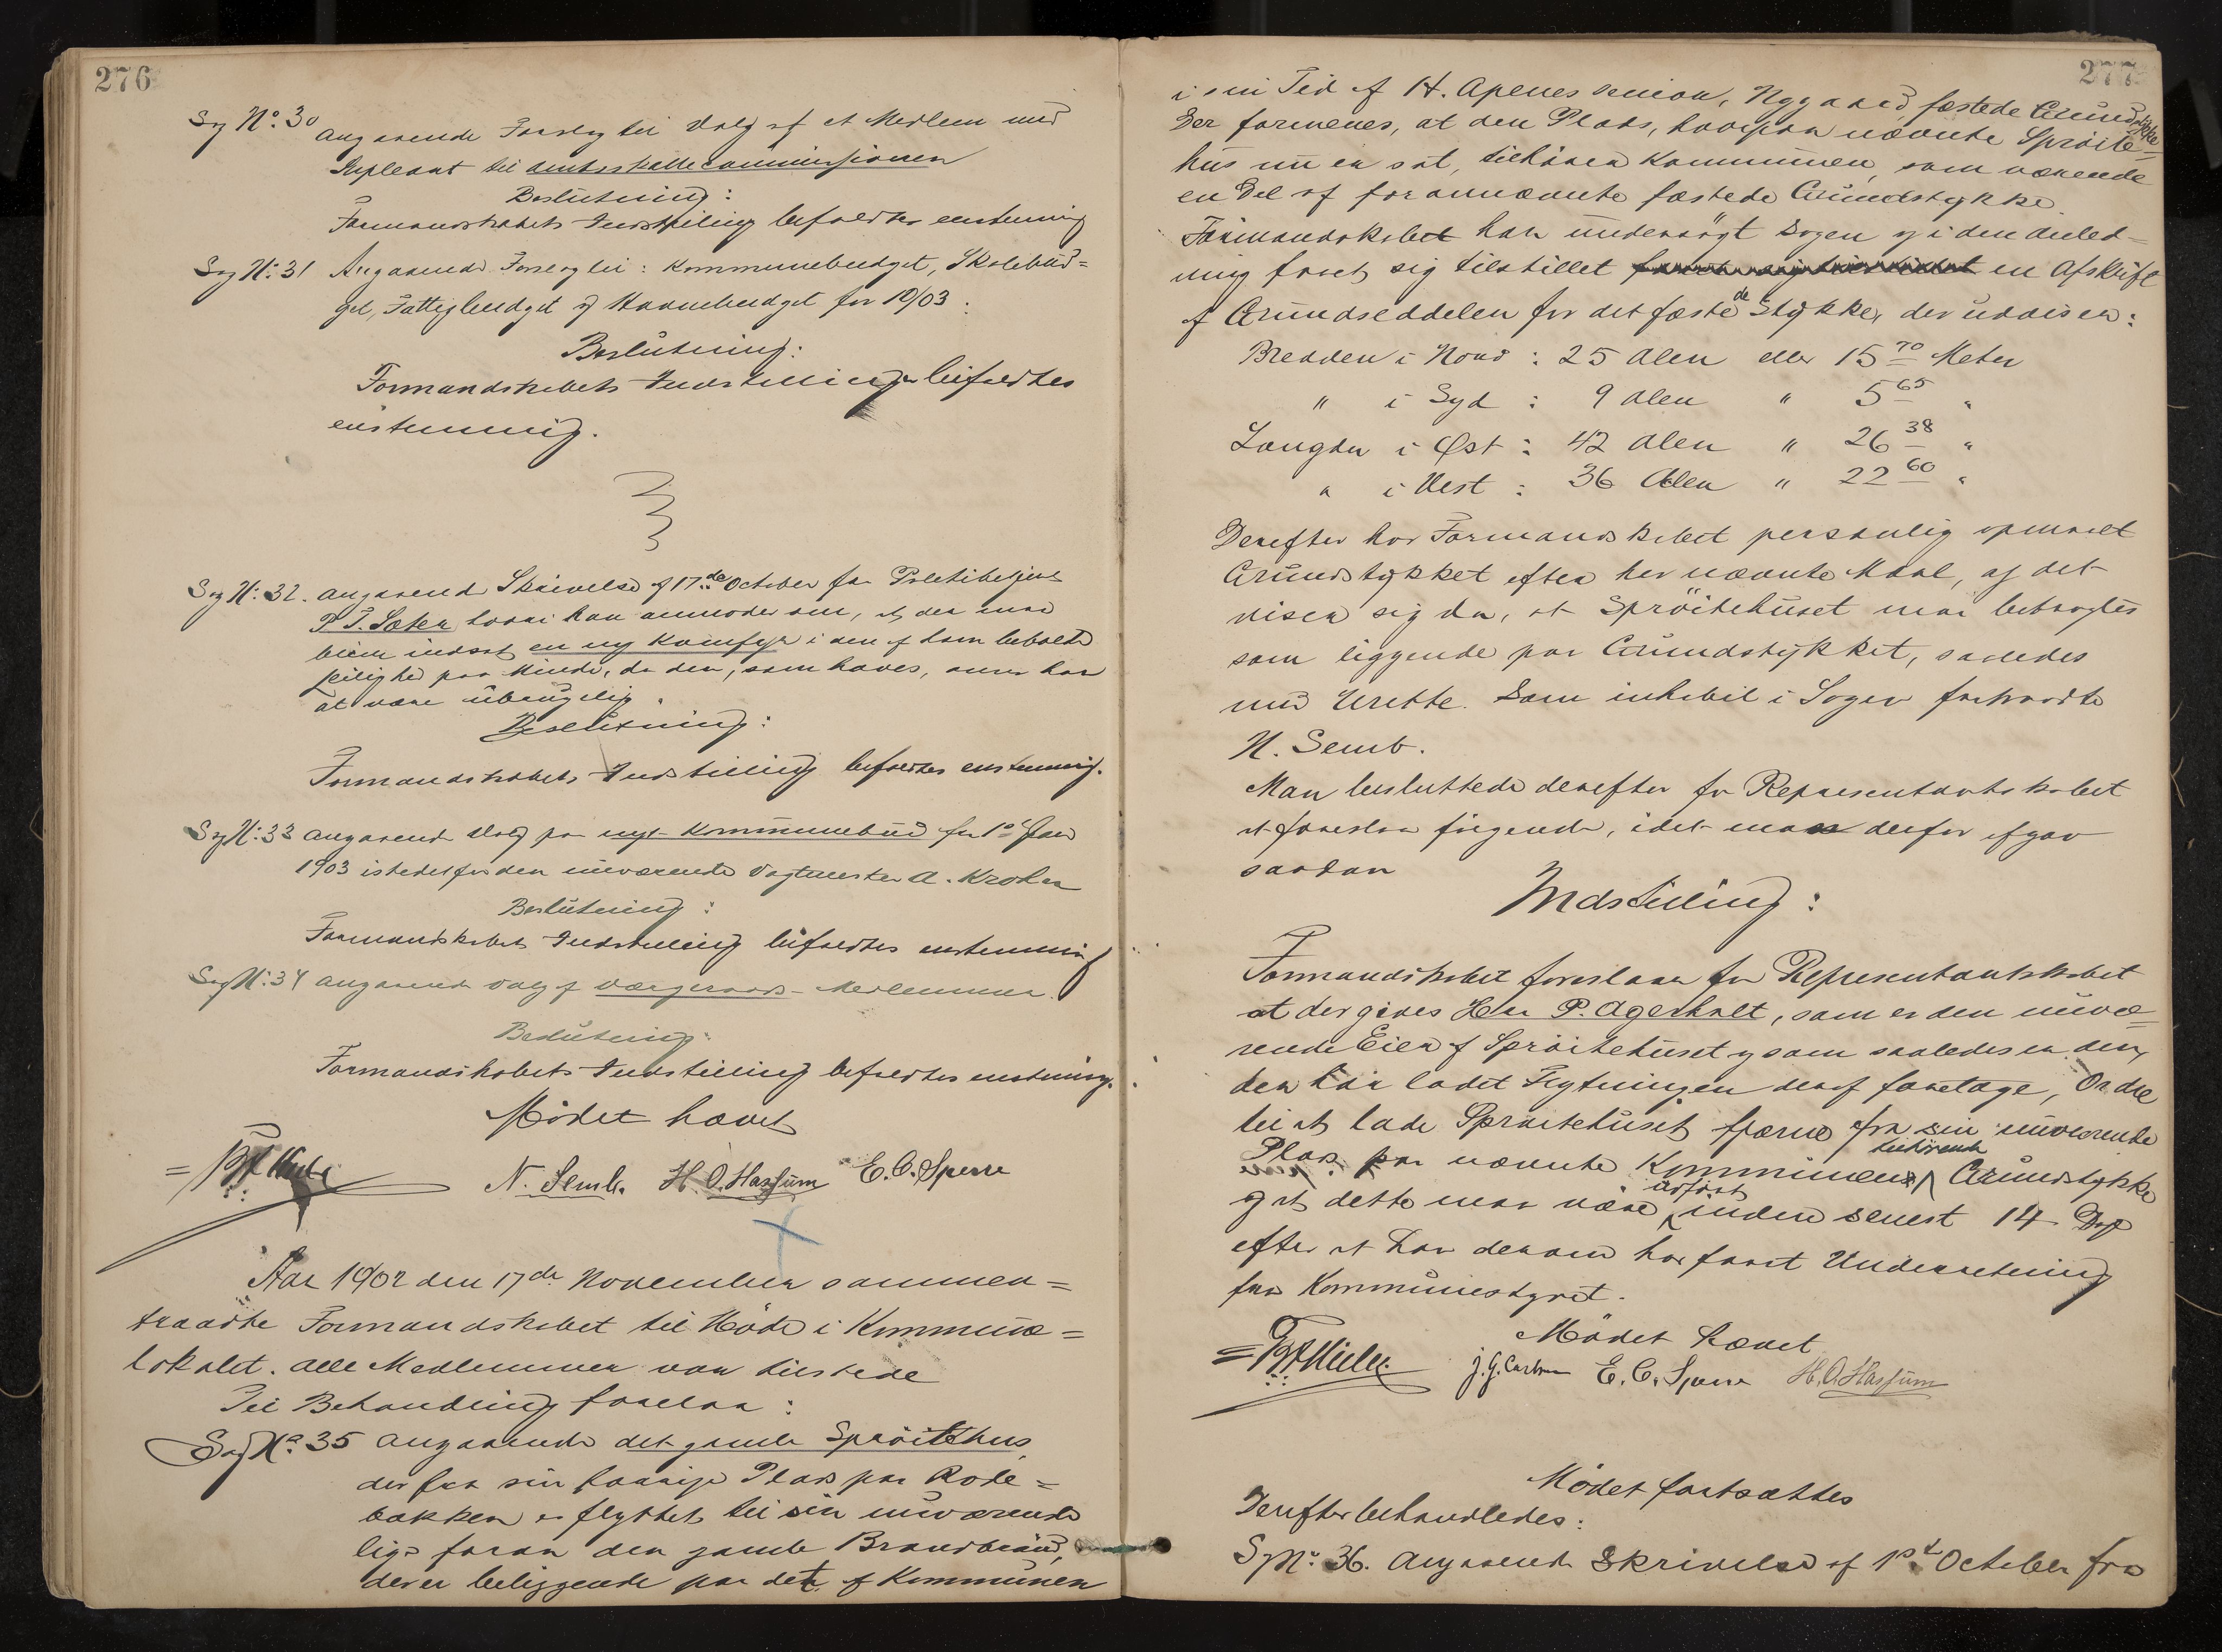 276
Sag No. 30 angaaende Forslag til Valg af et Medlem med
Supleant til amtsskattecommissionen
Beslutning:
Formandskabets Indstilling bifaldtes enstemmig
Sag N: 31 Angaaende Forslag til: Kommunebudget, Skolebud=
get, Fattigbudget og Havnebudget for 1903:
Beslutning:
Formandskabets Indstillinger bifaldtes
enstemmig.
Sag N: 32. angaaend Skrivelse af 17de October fra Politibetjent
P. T. Sæter hvori han anmoder om, at der maa
blive indsat en ny Komfyr i den af ham beboede
leilighed paa Minde, da den, som haves, anser han
at være ubrugelig.
Beslutning:
Formandskabets Indstilling bifaldtes enstemmig.
Sag N: 33 angaaende Valg paa nyt Kommunebud fra 1ste Jan
1903 istedetfor den nuværende Vagtmester A. Krohn
Beslutning:
Formandskabets Indstilling bifaldtes enstemmig
Sag N: 34 angaaende Valg af Værgeraads-Medlemmer.
Beslutning:
Formandskabets Indstilling bifaldtes enstemmig.
Mødet hævet
N. Semb. H. O. Hassum E. C. Sperre
Aar 1902 den 17de November sammen=
traadte Formandskabet til Møde i Kommune=
lokalet. Alle Medlemmer var tilstede
Til Behandling forelaa:
Sag No. 35 angaaende det gamle Sprøitehus,
der fra sin forrige Plads paa Rode=
bakken er flyttet til sin nuværende
lige foran den gamle Brandbrønd,
der er beliggende paa det af Kommunen
277
i sin Tid af H. Apenes senior, Nygaard, fæstede Grundstykke
Der formenes, at den Plads, hvorpaa nævnte Sprøite=
hus nu er sat, tilhører Kommunen, som værende
en Del af forannævnte fæstede Grundstykke.
Formandskabet har undersøgt Sagen og i den Anled=
ning faaet sig tilstillet en Afskrift
af Grundseddelen for det fæstede Stykke, der udviser:
Bredden i Nord: 25 Alen eller 15 70 Meter
" i Syd: 9 Alen " 5 65 "
Længden i Øst: 42 Alen " 26 38 "
" i Vest: 36 Alen " 22 60 "
Derefter har Formandskabet personlig opmaalt
Grundstykket efter her nævnte Maal, og det
viser sig da, at Sprøitehuset maa betragtes
som liggende paa Grundstykket, saaledes
med Urette. Som inhabil i Sagen fratraadte
N. Semb.
Man besluttede derefter for Repræsentantskabet
at foreslaa følgende, idet man derfor afgav
saadan
Indstilling:
Formandskabet foreslaar for Repræsentantskabet
at der gives Herr P. Agerholt, som er den nuvæ=
rende Eier af Sprøitehuset og som saaledes er den,
der har ladet Flytningen deraf foretage, Ordre
til at lade Sprøitehuset fjerne fra sin nuværende
Plads paa nævnte Kommunen tilhørende Grundstykke
og at dette maa være udført inden senest 14 Dage
efter at han derom har faaet Underretning
fra Kommunestyret.
Mødet hævet
J. G. Carlsen E. C. Sperre H. O. Hassum
Mødet fortsattes
Derefter behandledes:
Sag No. 36. Angaaende Skrivelse af 1st October fra